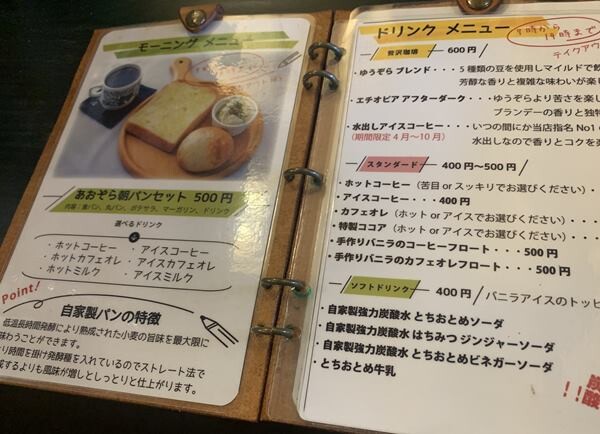 モーニング メニュー
あおぞら朝パンセット 500円
内容：食パン、丸パン、ポテサラ、マーガリン、ドリンク
選べるドリンク
・ホットコーヒー ・アイスコーヒー
・ホットカフェオレ ・アイスカフェオレ
・ホットミルク ・アイスミルク
Point!
自家製パンの特徴
低温長時間発酵により熟成された小麦の旨味を最大限に
味わうことができます。
り時間を掛け発酵種を入れているのでストレート法で
成するよりも風味が増しとしっとりと仕上がります。
ドリンク メニュー
19時まで
テイクアウ
贅沢珈琲 600円
・ゆうぞら ブレンド・・・5種類の豆を使用しマイルドで飲
芳醇な香りと複雑な味わいが楽し
・エチオピア アフターダーク・・・ゆうぞらより苦さを楽し
ブランデーの香りと独特
・水出しアイスコーヒー・・・いつの間にか当店指名 No1
(期間限定 4月～10月) 水出しなので香りとコクを楽
スタンダード 400円～500円
・ホットコーヒー (苦目 or スッキリでお選びください)・
・アイスコーヒー・・・400円
・カフェオレ (ホット or アイスでお選びください)・・・
・特製ココア (ホット or アイスでお選びください)・・・
・手作りバニラのコーヒーフロート・・・500円
・手作りバニラのカフェオレフロート・・・500円
ソフトドリンク 400円 / バニラアイスのトッピ
・自家製強力炭酸水 とちおとめソーダ
・自家製強力炭酸水 はちみつ ジンジャーソーダ
・自家製強力炭酸水 とちおとめビネガーソーダ
・とちおとめ牛乳
炭酸
!!